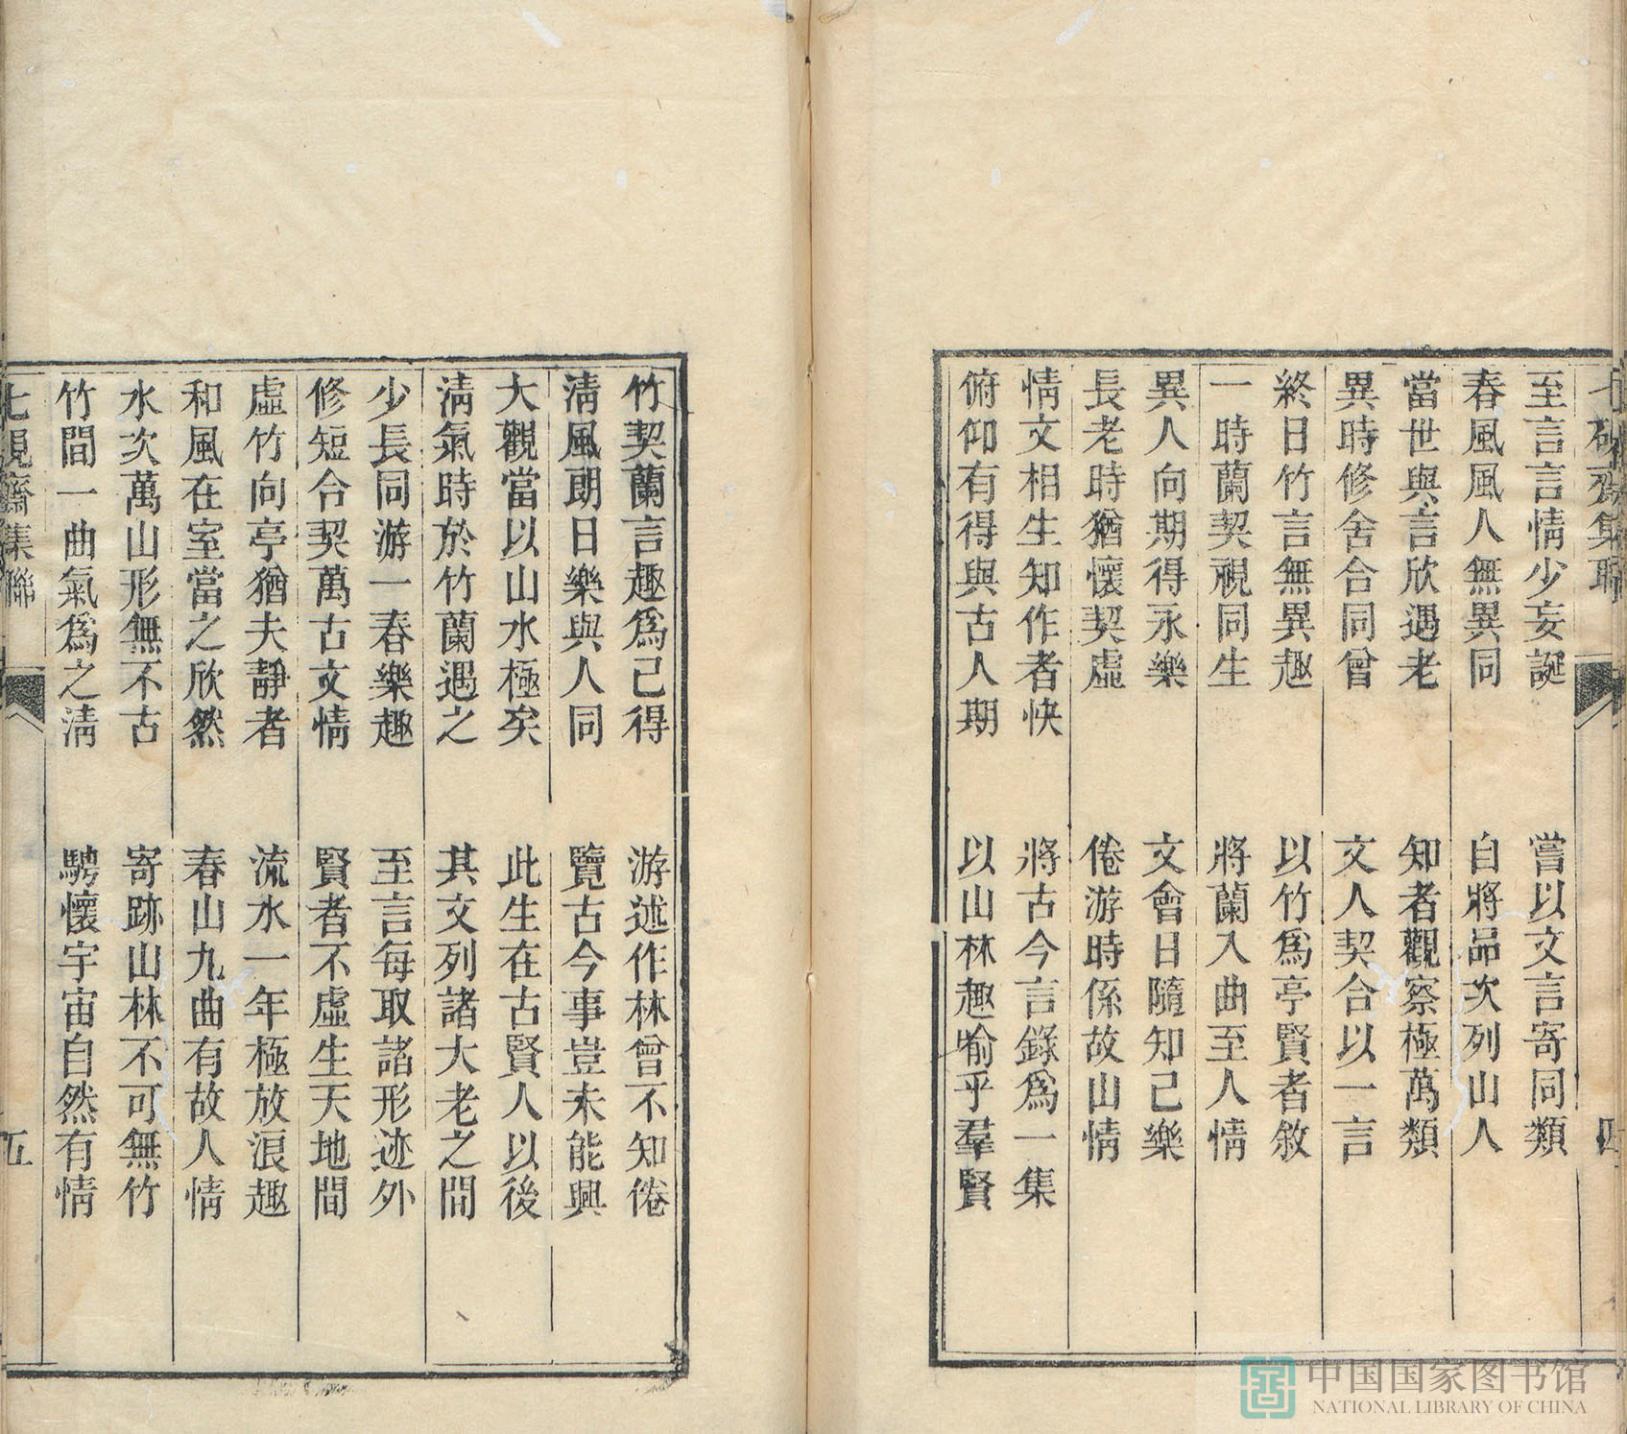 集聯
四
至言言情少妄誕　嘗以文言寄同類
春風風人無異同　自將品次列山人
當世與言欣遇老　知者觀察極萬類
異時修舍合同曾　文人契合以一言
終日竹言無異趣　以竹爲亭賢者敘
一時蘭契視同生　將蘭入曲至人情
異人向期得永樂　文會日隨知己樂
長老時猶懷契虛　倦游時係故山情
情文相生知作者快　將古今言錄爲一集
俯仰有得與古人期　以山林趣喻乎羣賢
竹契蘭言趣爲己得　游述作林曾不知倦
淸風朗日樂與人同　覽古今事豈未能興
大觀當以山水極矣　此生在古賢人以後
淸氣時於竹蘭遇之　其文列諸大老之間
少長同游一春樂趣　至言每取諸形迹外
修短合契萬古文情　賢者不虛生天地間
虛竹向亭猶夫靜者　流水一年極放浪趣
和風在室當之欣然　春山九曲有故人情
水次萬山形無不古　寄跡山林不可無竹
竹間一曲氣爲之淸　騁懷宇宙自然有情
七視齋集聯
五
中国国家图书馆
NATIONAL LIBRARY OF CHINA